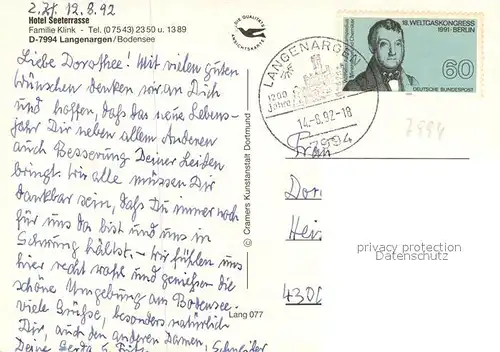 z. Zt. 12.8.92
Hotel Seeterrasse
Familie Klink - Tel. (0 75 43) 23 50 u. 13 89
D-7994 Langenargen / Bodensee
Liebe Dorothee! Mit vielen guten
Wünschen denken wir an Dich
und hoffen, daß das neue Lebens-
jahr Dir neben allem Anderen
auch Besserung Deiner Leiden
bringt. Wir alle müssen Dir
dankbar sein, daß Du immer noch
für uns da bist und uns in
Schwung hältst. - Wir fühlen uns
hier recht wohl und genießen die
schöne Umgebung am Bodensee.
Viele Grüße, besonders natürlich
Dir, auch den anderen Damen,
Deine Gerda & Fritz Schneider
DIE QUALITÄTS
ANSICHTSKARTE
© Cramers Kunstanstalt Dortmund
Lang 077
LANGENARGEN
1200
Jahre
14.-8.92-18
7994
18. WELTGASKONGRESS
1991 · BERLIN
60
DEUTSCHE BUNDESPOST
7994
Frau
Dor
Hei
430
privacy protection
VEREDELUNG DM